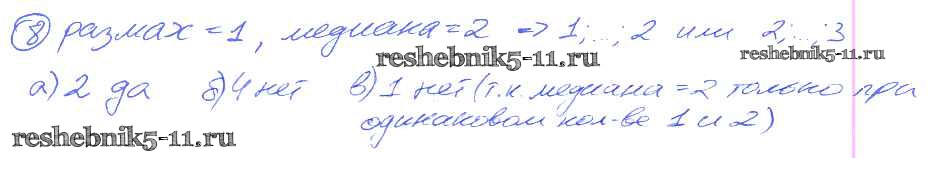 8) размах = 1, медиана = 2 => 1;...;2 или 2;...;3
reshebnik5-11.ru
reshebnik5-11.ru
а) 2 да б) 4 нет в) 1 нет (т.к. медиана = 2 только при
одинаковом кол-ве 1 и 2)
reshebnik5-11.ru